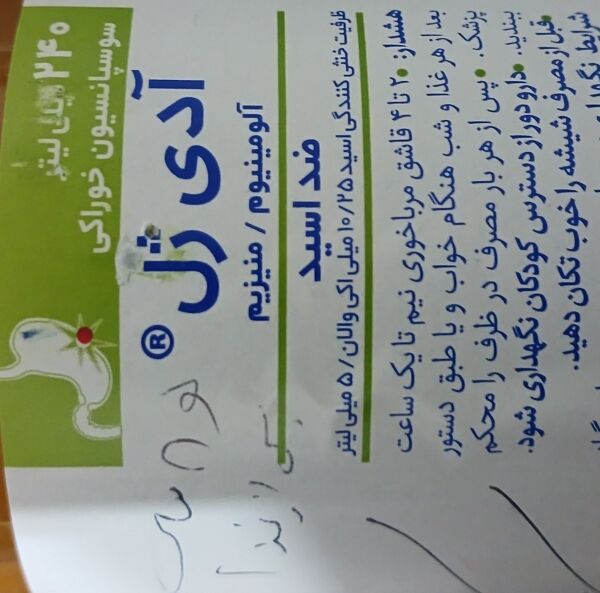 سوسپانسیون خوراکی
۲۴۰ میلی لیتر
آدی ژل®
آلومینیوم / منیزیم
ضد اسید
ظرفیت خنثی کنندگی اسید ۱۰/۲۵ میلی اکی والان/ ۵ میلی لیتر
هشدار: • ۲ تا ۴ قاشق مرباخوری نیم تا یک ساعت
بعد از هر غذا و شب هنگام خواب و یا طبق دستور
پزشک. • پس از هر بار مصرف در ظرف را محکم
ببندید. • دارو دور از دسترس کودکان نگهداری شود.
• قبل از مصرف شیشه را خوب تکان دهید.
شرایط